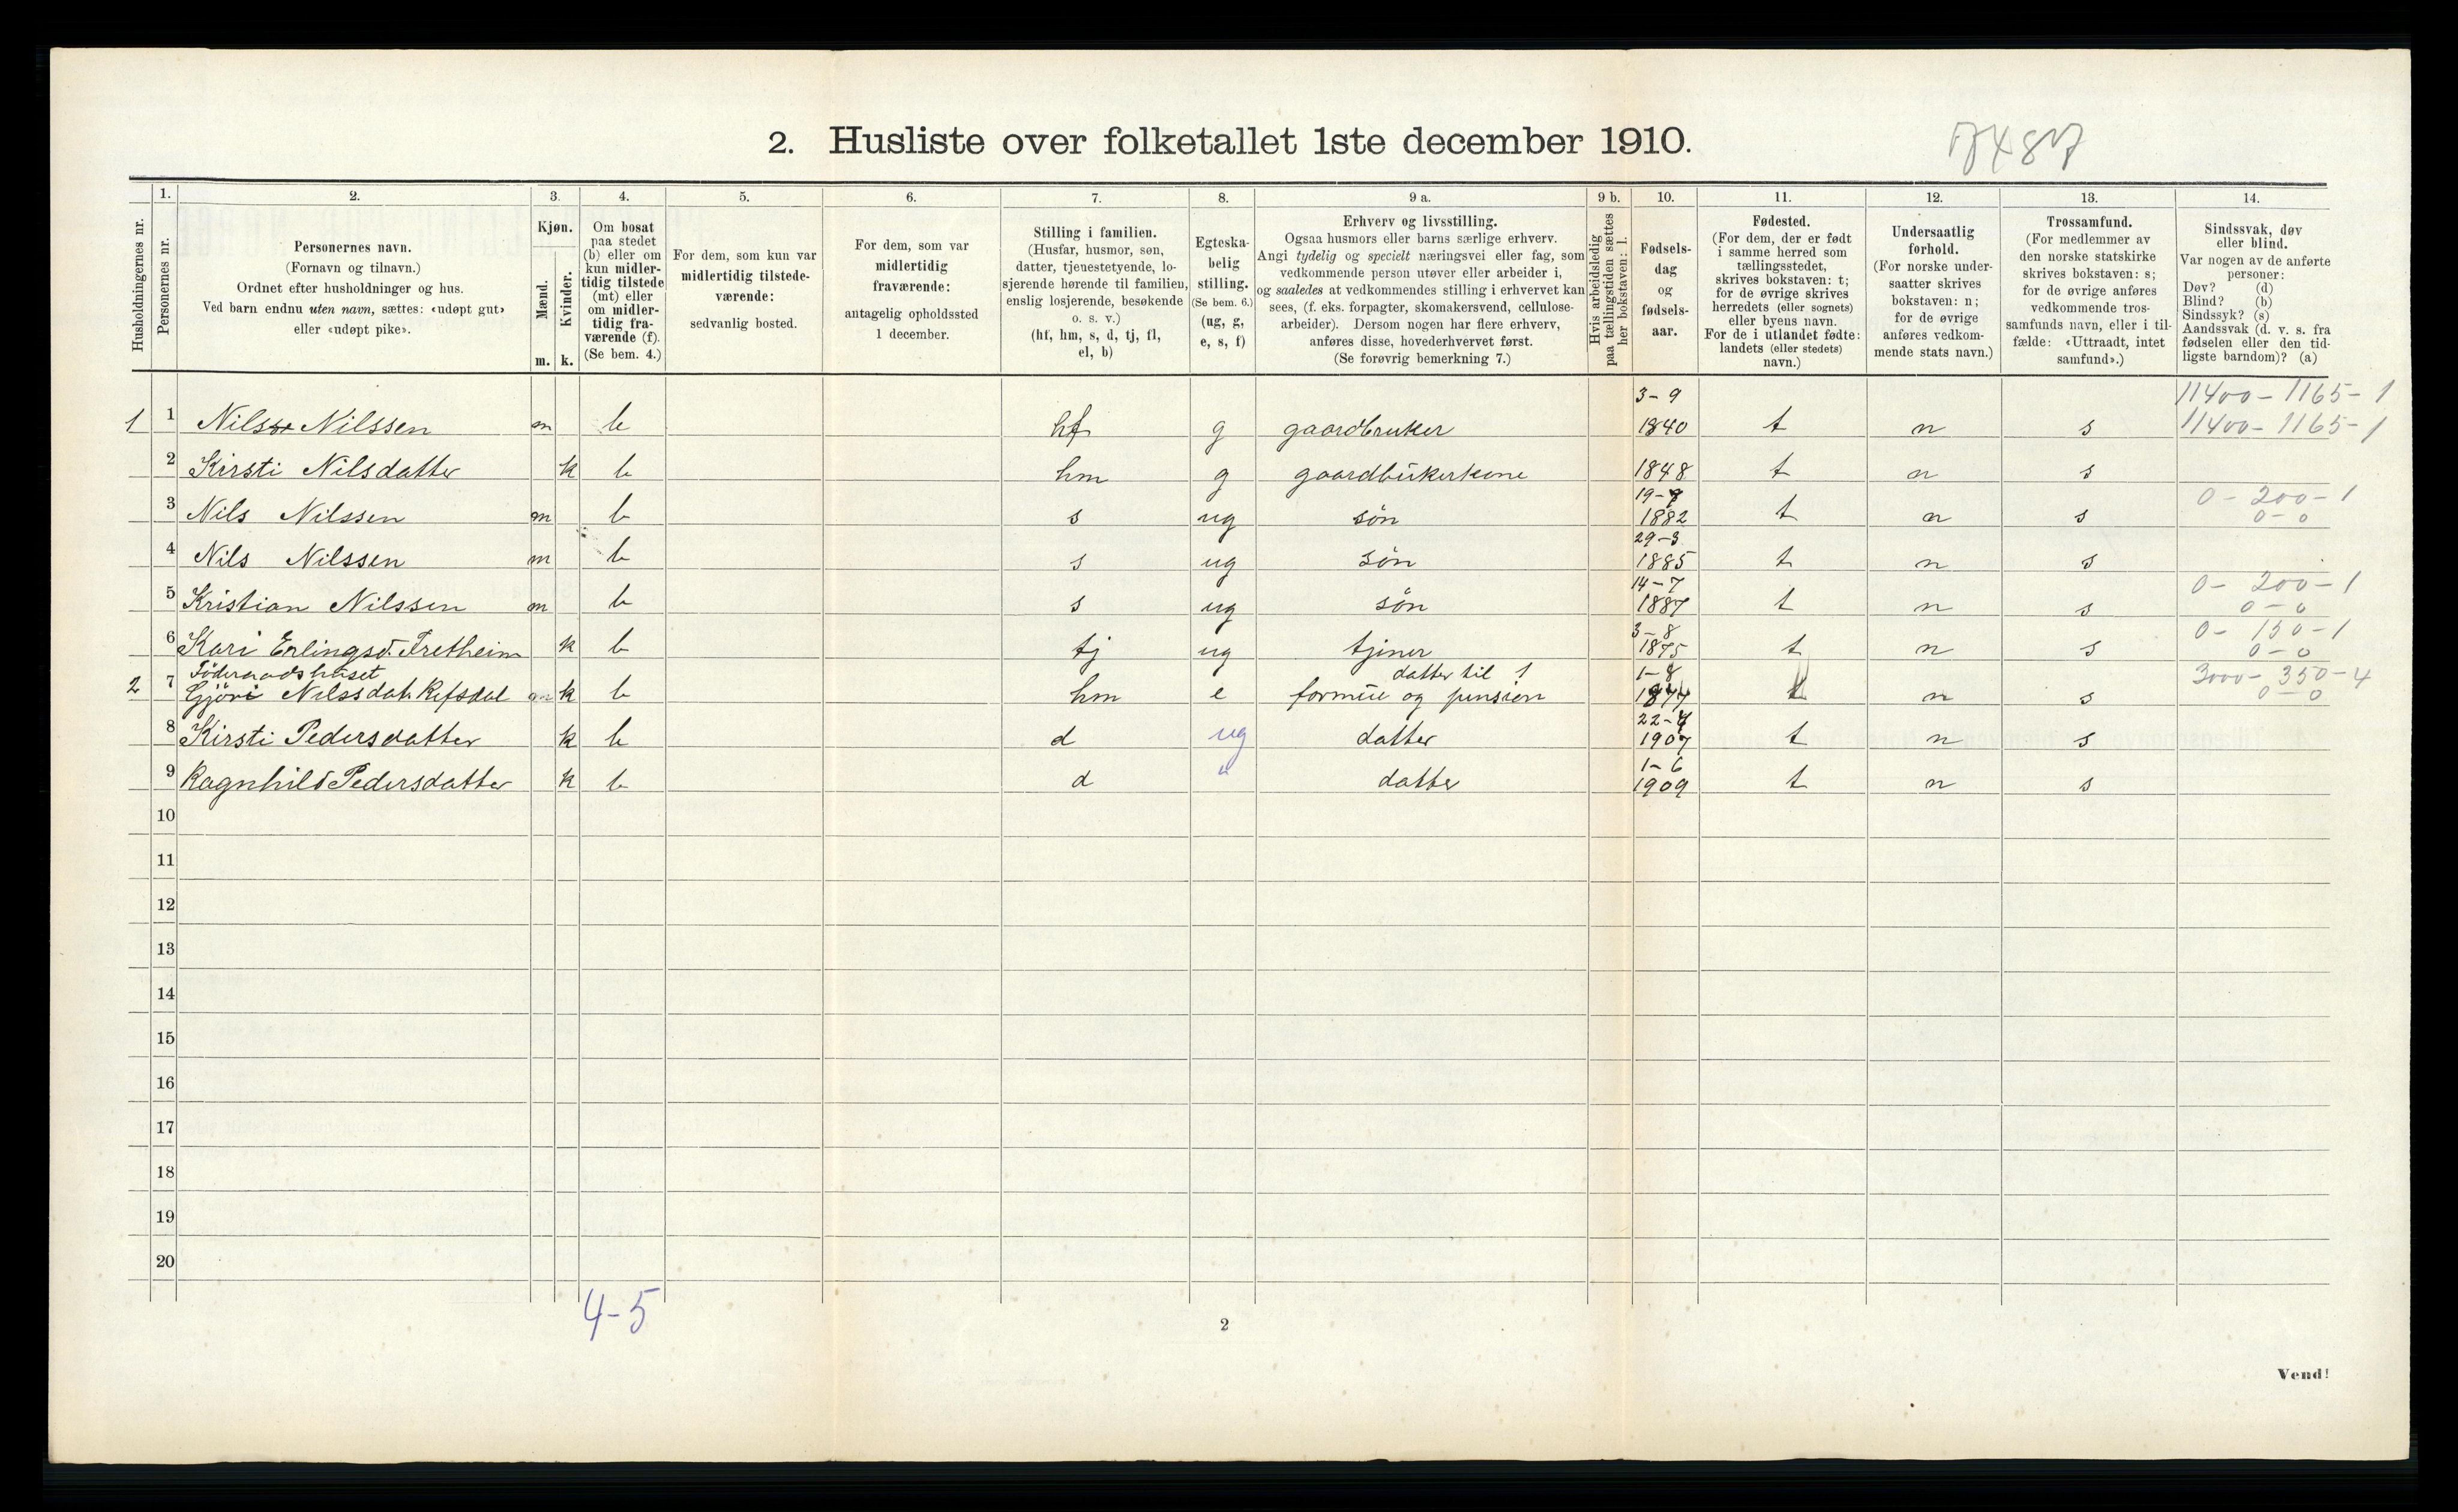 2. Husliste over folketallet 1ste december 1910.
7487
Husholdningernes nr.
1.
Personernes nr.
2.
Personernes navn.
(Fornavn og tilnavn.)
Ordnet efter husholdninger og hus.
Ved barn endnu uten navn, sættes: «udøpt gut»
eller «udøpt pike».
3.
Kjøn.
Mænd.
Kvinder.
m. k.
4.
Om bosat
paa stedet
(b) eller om
kun midler-
tidig tilstede
(mt) eller
om midler-
tidig fra-
værende (f).
(Se bem. 4.)
5.
For dem, som kun var
midlertidig tilstede-
værende:
sedvanlig bosted.
6.
For dem, som var
midlertidig
fraværende:
antagelig opholdssted
1 december.
7.
Stilling i familien.
(Husfar, husmor, søn,
datter, tjenestetyende, lo-
sjerende hørende til familien,
enslig losjerende, besøkende
o. s. v.)
(hf, hm, s, d, tj, fl,
el, b)
8.
Egteska-
belig
stilling.
(Se bem. 6.)
(ug, g,
e, s, f)
9 a.
Erhverv og livsstilling.
Ogsaa husmors eller barns særlige erhverv.
Angi tydelig og specielt næringsvei eller fag, som
vedkommende person utøver eller arbeider i,
og saaledes at vedkommendes stilling i erhvervet kan
sees, (f. eks. forpagter, skomakersvend, cellulose-
arbeider). Dersom nogen har flere erhverv,
anføres disse, hovederhvervet først.
(Se forøvrig bemerkning 7.)
9 b.
Hvis arbeidsledig
paa tællingstiden sættes
her bokstaven: l.
10.
Fødsels-
dag
og
fødsels-
aar.
11.
Fødested.
(For dem, der er født
i samme herred som
tællingsstedet,
skrives bokstaven: t;
for de øvrige skrives
herredets (eller sognets)
eller byens navn.
For de i utlandet fødte:
landets (eller stedets)
navn.)
12.
Undersaatlig
forhold.
(For norske under-
saatter skrives
bokstaven: n;
for de øvrige
anføres vedkom-
mende stats navn.)
13.
Trossamfund.
(For medlemmer av
den norske statskirke
skrives bokstaven: s;
for de øvrige anføres
vedkommende tros-
samfunds navn, eller i til-
fælde: «Uttraadt, intet
samfund».)
14.
Sindssvak, døv
eller blind.
Var nogen av de anførte
personer:
Døv? (d)
Blind? (b)
Sindssyk? (s)
Aandssvak (d. v. s. fra
fødselen eller den tid-
ligste barndom)? (a)
3-9 11400-1165-1
1 1 Nils Nilssen m b hf g gaardbruker 1840 t n s 11400-1165-1
2 Kirsti Nilsdatter k b hm g gaardbukerkone 1848 t n s
19- 0-200-1
3 Nils Nilssen m b s ug søn 1882 t n s 0-0
29-3
4 Nils Nilssen m b s ug søn 1885 t n s
14-7 0-200-1
5 Kristian Nilssen m b s ug søn 1887 t n s 0-0
3-8 0-150-1
6 Kari Erlingsd. Fretheim k b tj ug tjiner 1875 t n s 0-0
Föderaadshuset datter til 1 1-8 3000-350-4
2 7 Gjöri Nilssdat. Refsdal k b hm e formue og pension t n s 0-0
22-
8 Kirsti Pedersdatter k b d ug datter 1907 t n s
1-6
9 Ragnhild Pedersdatter k b d " datter 1909 t n s
10
11
12
13
14
15
16
17
18
19
20
4-5
2
Vend!